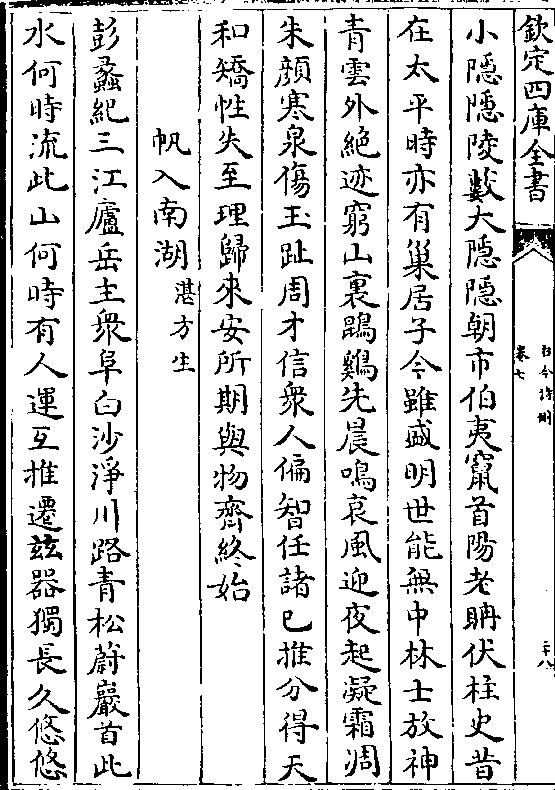 欽定四庫全書
古今詩刪
卷七
二十八
小隱隱陵藪大隱隱朝市伯夷竄首陽老聃伏柱史昔
在太平時亦有巢居子今雖盛明世能無中林士放神
青雲外絶迹窮山裏鵾鷄先晨鳴哀風迎夜起凝霜凋
朱顔寒泉傷玉趾周才信衆人偏智任諸已推分得天
和矯性失至理歸來安所期與物齊終始
帆入南湖 湛方生
彭蠡紀三江廬岳主衆阜白沙淨川路青松蔚巖首此
水何時流此山何時有人運互推遷兹器獨長久悠悠